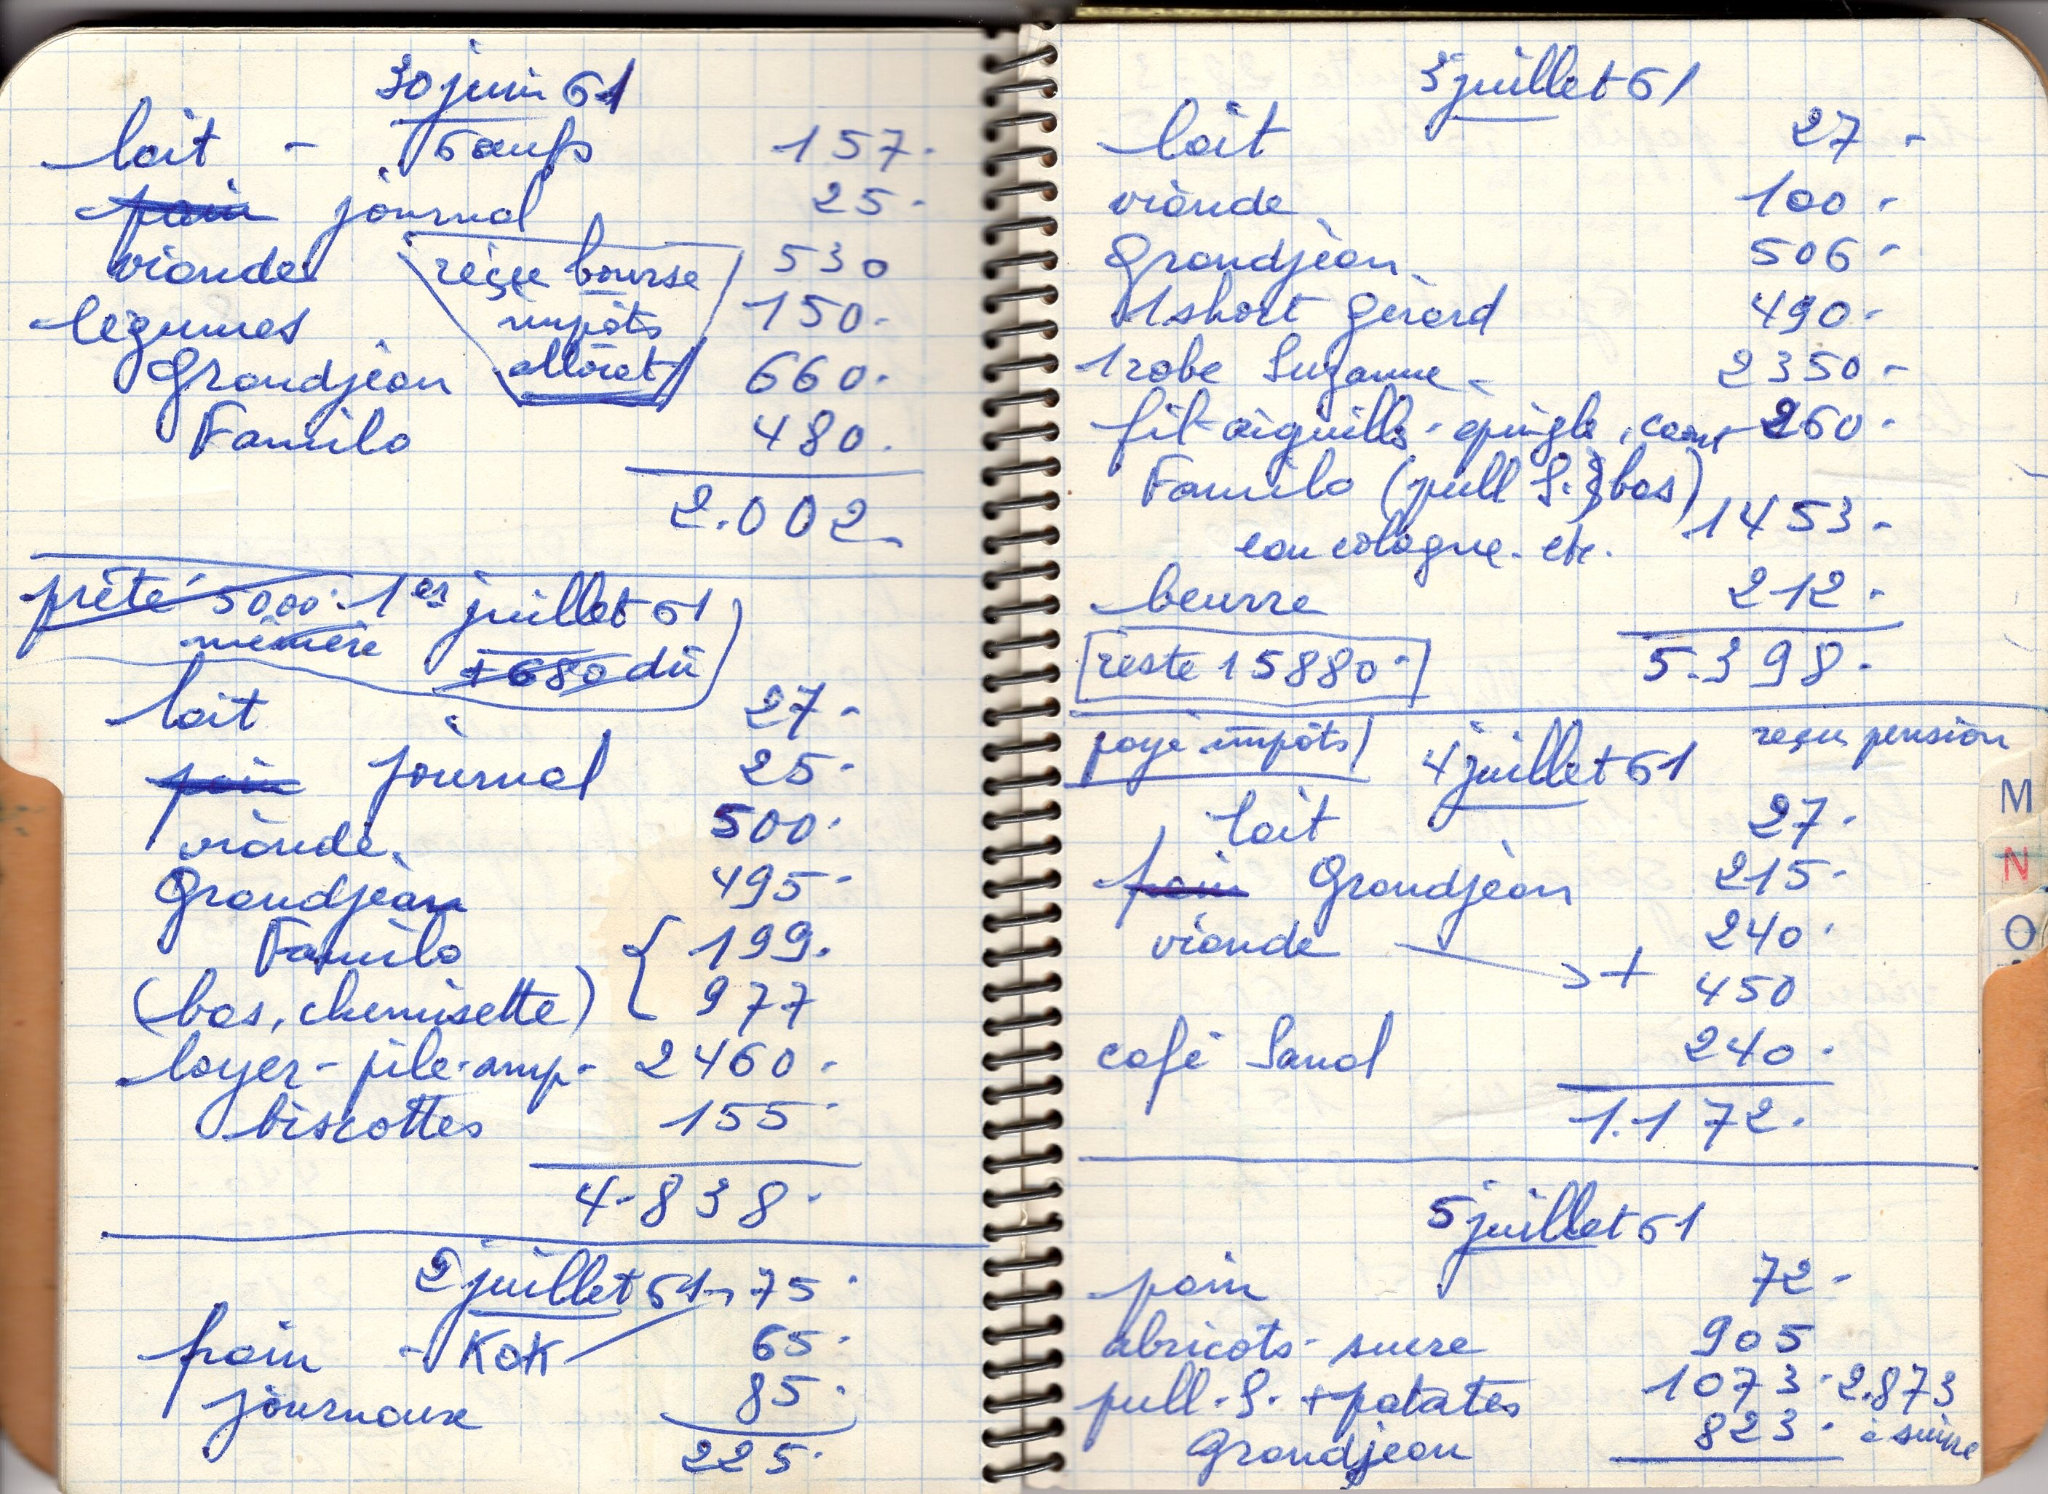 30 juin 61
lait - 6 œufs 157.
pain journal 25.
viande 530
reçue bourse
légumes 150.
impôts
Grandjean 660.
allocat
Familo 480.
2.002
prêté 5000. 1er juillet 61
mémère
+ 680 dû
lait 27.
pain journal 25.
viande 500.
Grandjean 495.
Familo { 199.
(bas, chemisette) 977
loyer - pile - amp. 2460.
biscottes 155.
4.838.
2 juillet 61 75.
pain - KOK 65.
journaux 85.
225.
3 juillet 61
lait 27.
viande 100.
Grandjean 506.
1 short Gérard 490.
1 robe Suzanne 2350.
fil - aiguilles - épingle, 260.
Familo (pull S. 3 bas) 1453.
eau cologne. etc.
beurre 212.
reste 15880. 5.398.
payé impôts 4 juillet 61 reçu pension
lait 27.
pain Grandjean 215.
viande 240.
+ 450
café Sand 240.
1.172.
M
N
O
5 juillet 61
pain 72.
abricots - sucre 905
pull. S. + patates 1073. 2.873
Grandjean 823. à suivre